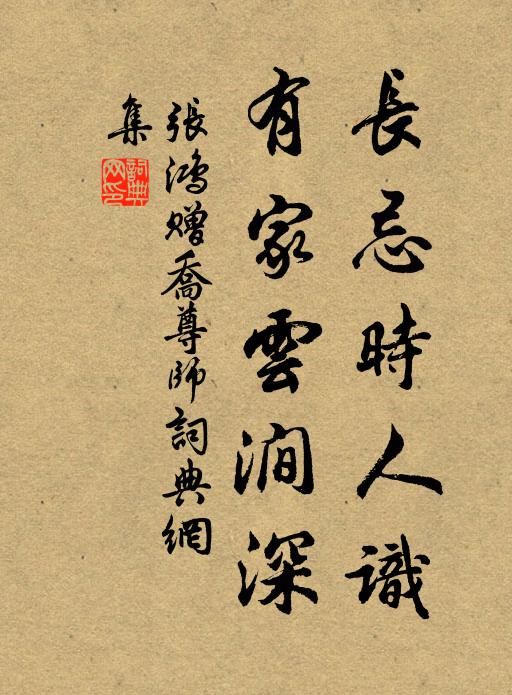 長忌時人識
有家雲澗深
張鴻贈喬尊師詞典網
集
詞典
网印